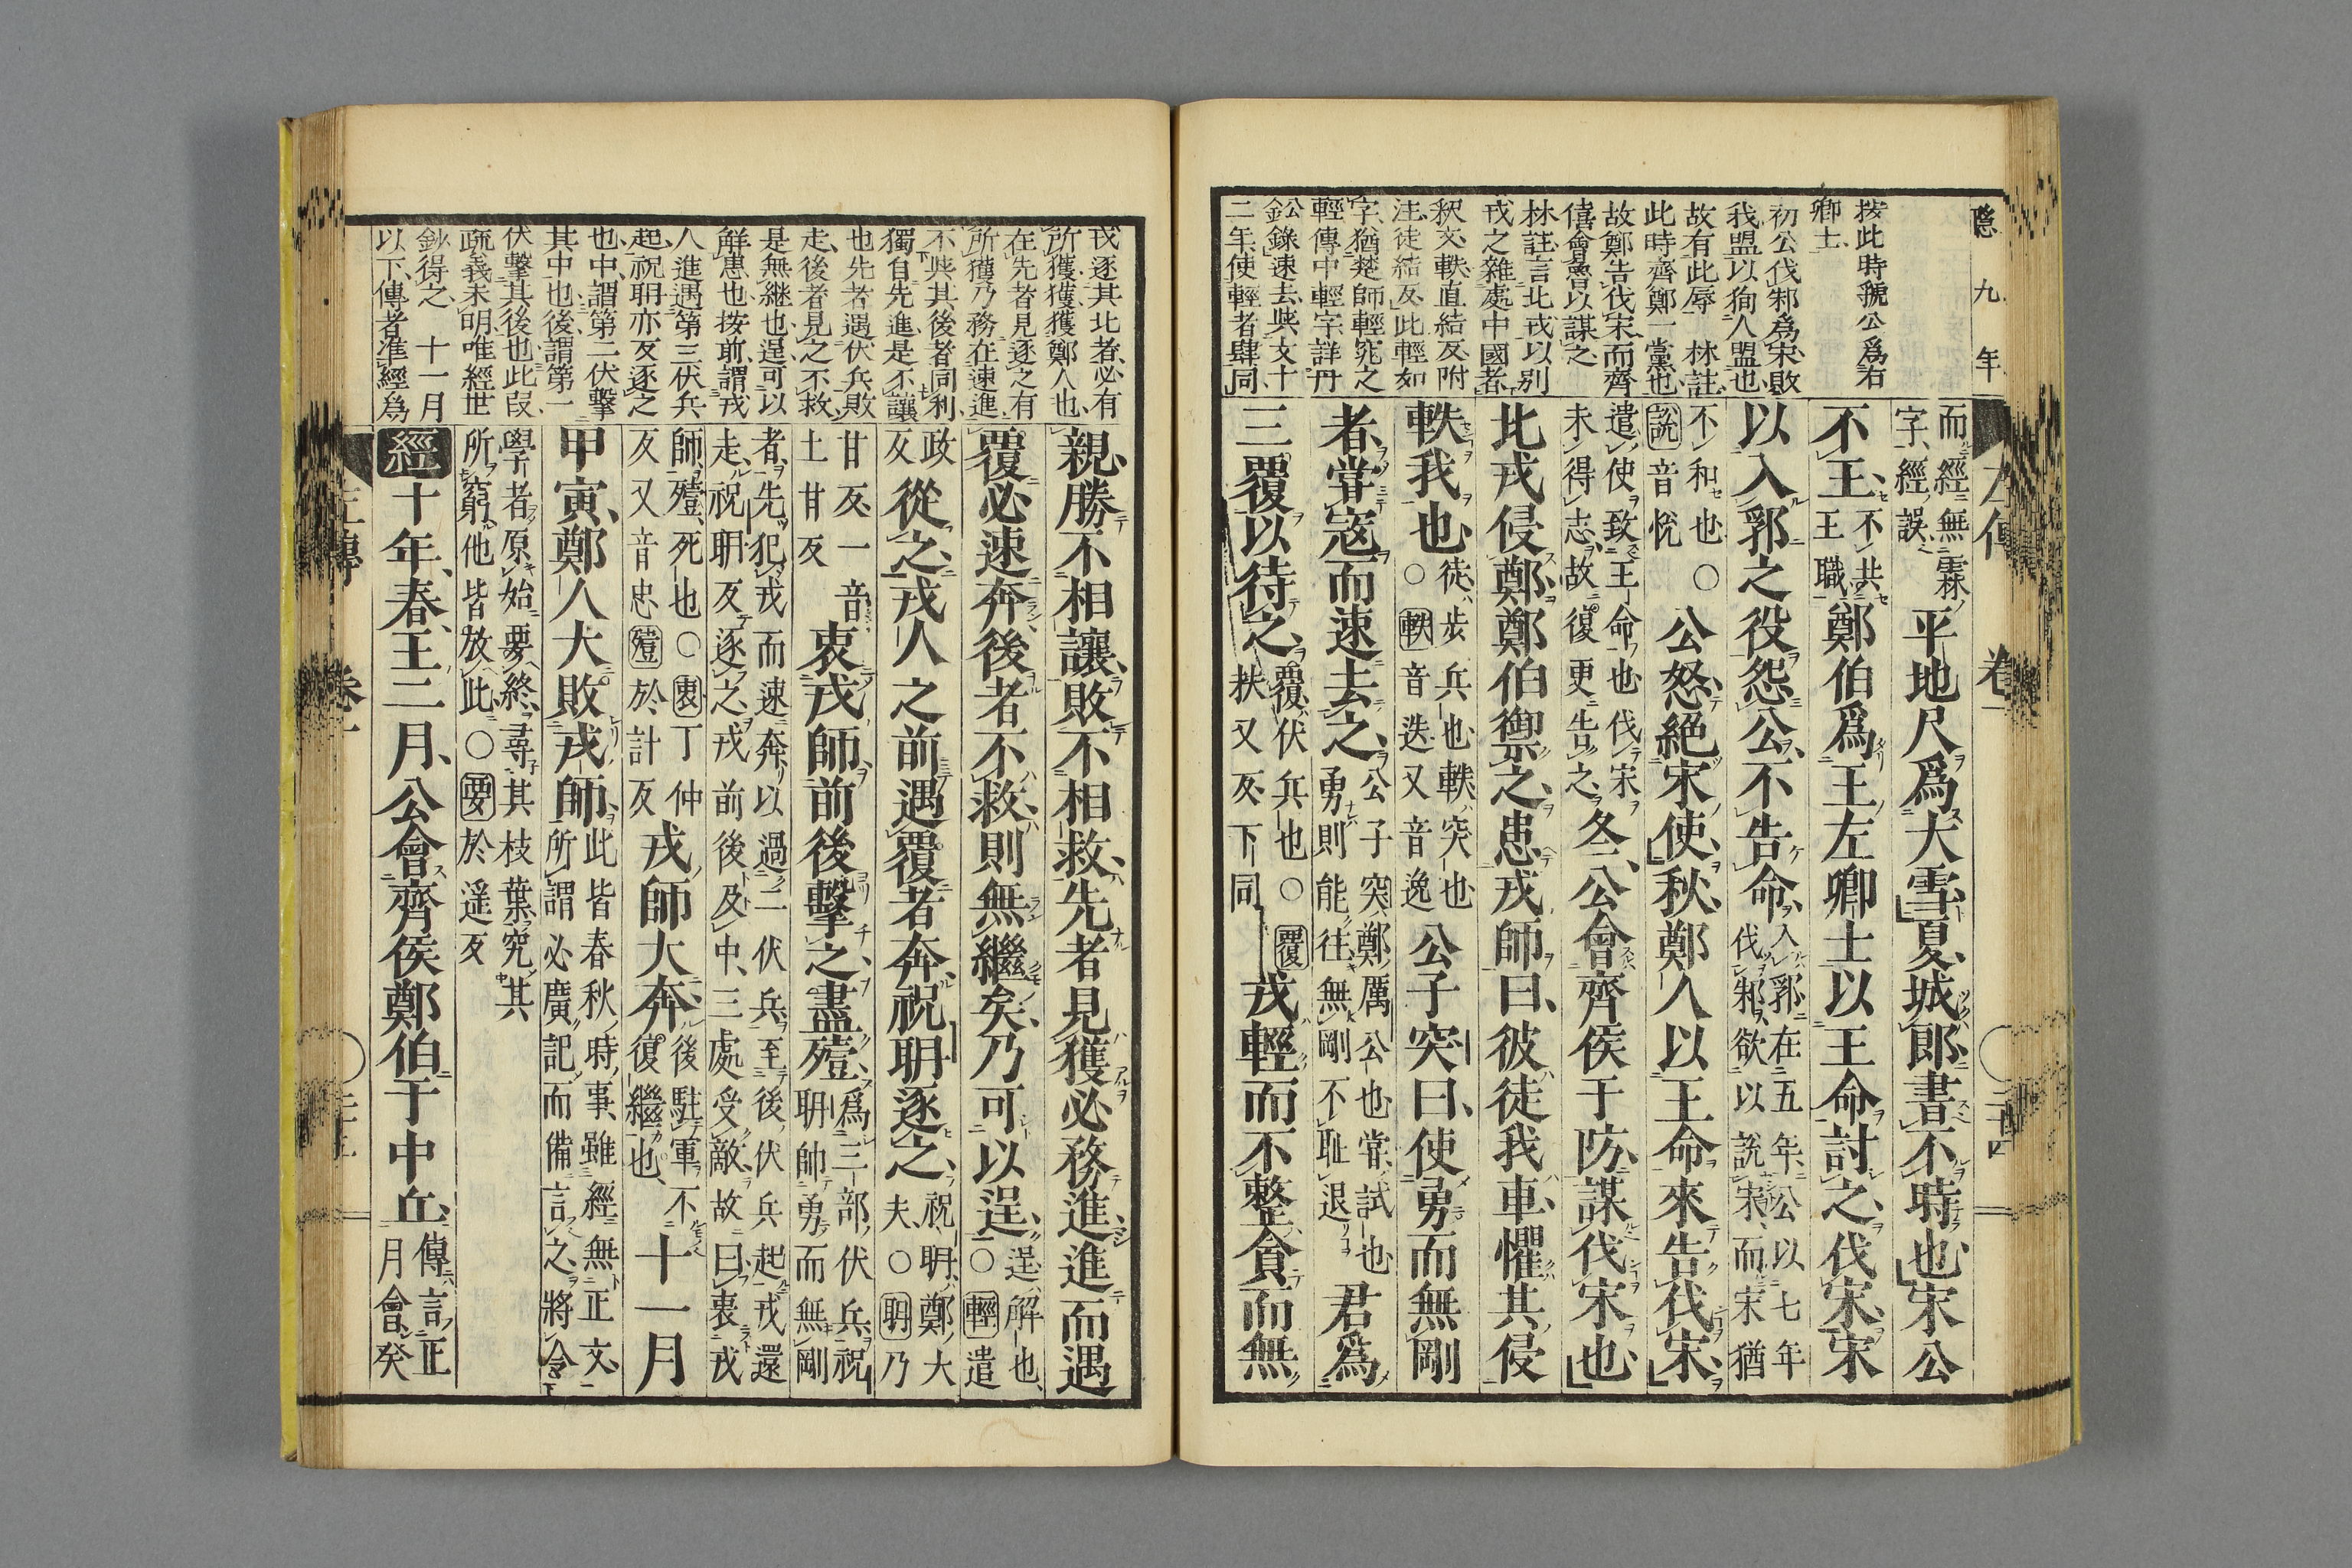 隱九年
按此時虢公爲右
卿士
初公伐邾爲宋敗
我盟以狥人盟也
故有此辱 林註
此時齊鄭一黨也
故鄭告伐宋而齊
僖會魯以謀之
林註言北戎以别
戎之雜處中國者
釈文軼直結反附
注徒結反此輕如
字猶楚師輕窕之
輕傳中輕字詳丹
鉛錄速去與文十
二年使輕者肆同
左傳 卷一
而經無霖
字經誤
平地尺爲大雪夏城郎書不時也宋公
不王不共
王職鄭伯爲王左卿士以王命討之伐宋宋
以入郛之役怨公不告命入郛在五年公以七年
伐邾欲以說宋而宋猶
不和也○
說音悅公怒絕宋使秋鄭人以王命來告伐宋
遣使致王命也伐宋
未得志故復更告之冬公會齊侯于防謀伐宋也
北戎侵鄭鄭伯禦之患戎師曰彼徒我車懼其侵
軼我也徒步兵也軼突也
○軼音迭又音逸公子突曰使勇而無剛
者嘗寇而速去之公子突鄭厲公也嘗試也
勇則能往無剛不恥退君爲
三覆以待之覆伏兵也○覆
扶又反下同戎輕而不整貪而無
戎逐其北者必有
所獲獲獲鄭人也
在先者見逐之有
所獲乃務在速進
不與其後者同利
獨自先進是不讓
也先者遇伏兵敗
走後者見之不救
是無継也逞可以
觧患也按前謂戎
人進遇第三伏兵
起祝聃亦反逐之
也中謂第二伏擊
其中也後謂第一
伏擊其後也此段
疏義未明唯經世
鈔得之 十一月
以下傳者准經爲
親勝不相讓敗不相救先者見獲必務進進而遇
覆必速奔後者不救則無繼矣乃可以逞逞解也
○輕遣
政
反從之戎人之前遇覆者奔祝聃逐之祝聃鄭大
夫○聃乃
甘反一音
土甘反衷戎師前後擊之盡殪爲三部伏兵祝
聃帥勇而無剛
者先犯戎而速奔以遇二伏兵至後伏兵起戎還
走祝聃反逐之戎前後及中三處受敵故曰衷戎
師殪死也○衷丁仲
反又音忠殪於計反戎師大奔後駐軍不
復繼也十一月
甲寅鄭人大敗戎師此皆春秋時事雖經無正文
所謂必廣記而備言之將令
學者原始要終尋其枝葉究其
所窮他皆放此○要於遥反
經十年春王二月公會齊侯鄭伯于中丘傳言正
月會癸